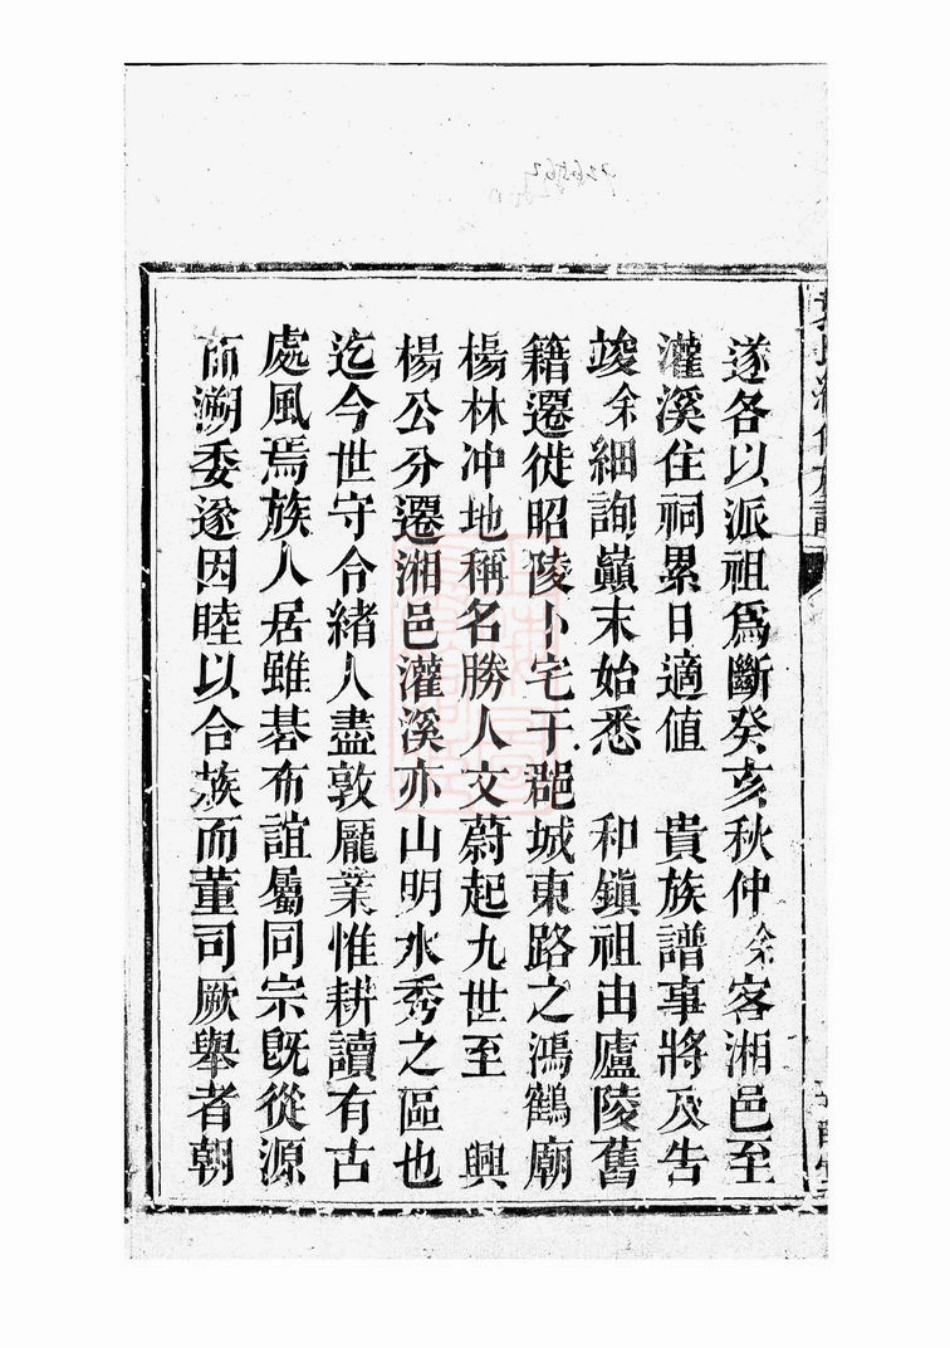 遂各以派祖爲斷癸亥秋仲余客湘邑至
灌溪住祠累日適值　貴族譜事將及告
竣余細詢巔末始悉　和鎭祖由廬陵舊
籍遷徙昭陵卜宅于郡城東路之鴻鶴廟
楊林冲地稱名勝人文蔚起九世至　興
楊公分遷湘邑灌溪亦山明水秀之區也
迄今世守令緒人盡敦龎業惟耕讀有古
處風焉族人居雖碁布誼屬同宗旣從源
而溯委遂因睦以合族而董司厥舉者朝